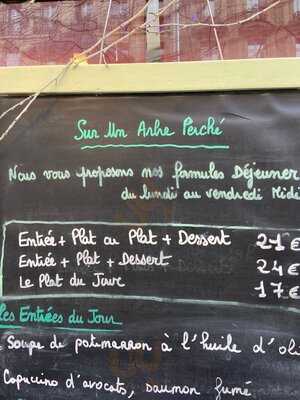 Sur Un Arbre Perché
Nous vous proposons nos formules Déjeuner
du lundi au vendredi Midi
Entrée + Plat ou Plat + Dessert 21 €
Entrée + Plat + Dessert 24 €
Le Plat du Jour 17 €
les Entrées du Jour
Soupe de potimarron à l'huile d'oli
Capucino d'avocats, saumon fumé